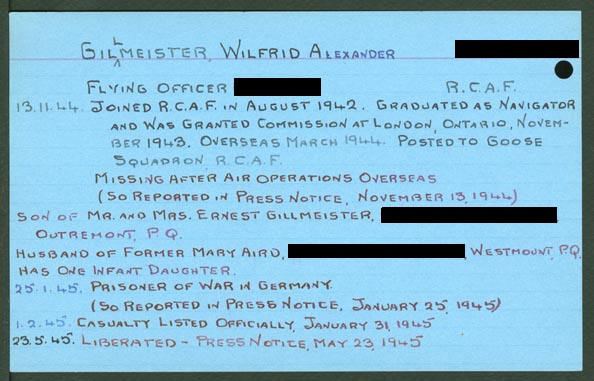 GILLMEISTER, WILFRID ALEXANDER
FLYING OFFICER R.C.A.F.
13.11.44. JOINED R.C.A.F. IN AUGUST 1942. GRADUATED AS NAVIGATOR
AND WAS GRANTED COMMISSION AT LONDON, ONTARIO, NOVEM-
BER 1943. OVERSEAS MARCH 1944. POSTED TO GOOSE
SQUADRON, R.C.A.F.
MISSING AFTER AIR OPERATIONS OVERSEAS
(SO REPORTED IN PRESS NOTICE, NOVEMBER 13, 1944)
SON OF MR. AND MRS. ERNEST GILLMEISTER,
OUTREMONT, P.Q.
HUSBAND OF FORMER MARY AIRD, WESTMOUNT, P.Q.
HAS ONE INFANT DAUGHTER.
25.1.45. PRISONER OF WAR IN GERMANY.
(SO REPORTED IN PRESS NOTICE, JANUARY 25, 1945)
1.2.45. CASUALTY LISTED OFFICIALLY, JANUARY 31, 1945
23.5.45. LIBERATED - PRESS NOTICE, MAY 23, 1945